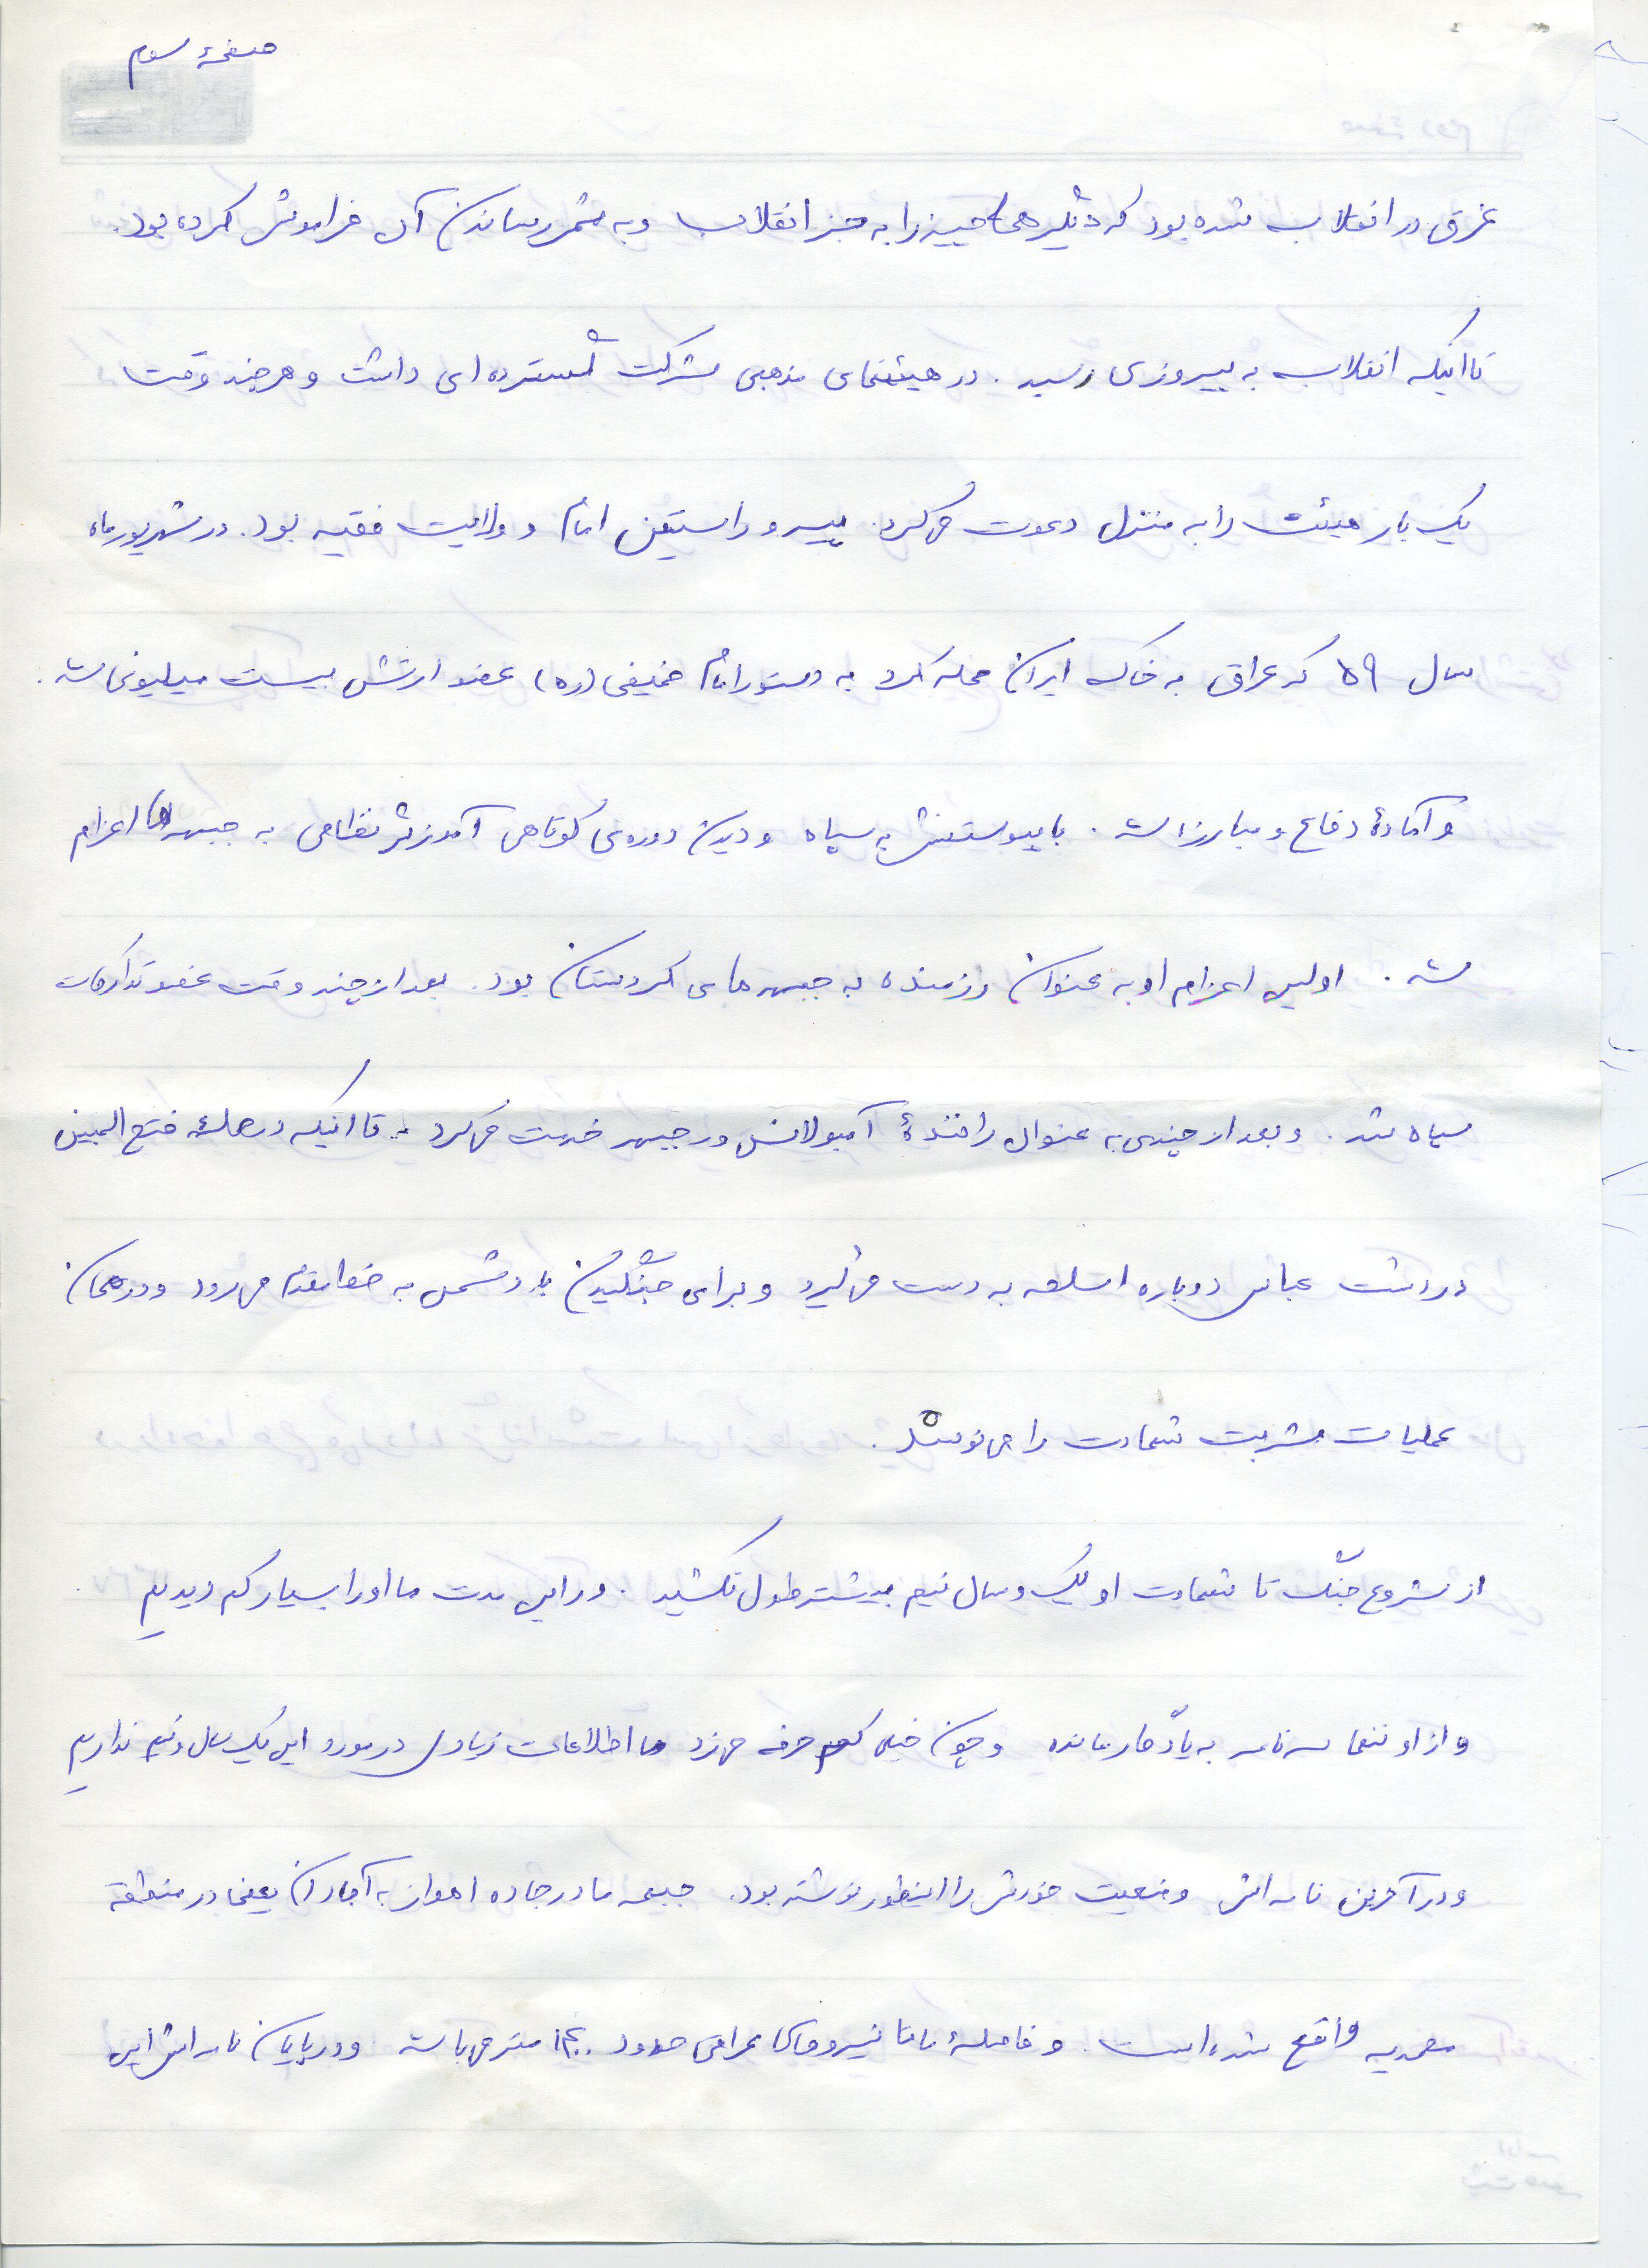 صفحهٔ سوم
غرق در انقلاب شده بود که دیگر همهٔ چیز را به جز انقلاب و به ثمر رساندن آن فراموش کرده بود.
تا اینکه انقلاب به پیروزی رسید. در هیئتهای مذهبی شرکت گسترده‌ای داشت و هر چند وقت
یک بار هیئت را به منزل دعوت می‌کرد. پیرو راستین امام و ولایت فقیه بود. در شهریور ماه
سال ۵۹ که عراق به خاک ایران حمله کرد به دستور امام خمینی (ره) عضو ارتش بیست میلیونی شد.
و آمادهٔ دفاع و مبارزه شد. با پیوستنش به سپاه و دیدن دوره‌ی کوتاهی آموزش نظامی به جبهه‌ها اعزام
شد. اولین اعزام او به عنوان رزمنده به جبهه‌های کردستان بود. بعد از چند وقت عضو تدارکات
سپاه شد. و بعد از چندی به عنوان رانندهٔ آمبولانس در جبهه خدمت می‌کرد. تا اینکه در حملهٔ فتح المبین
در دشت عباس دوباره اسلحه به دست می‌گیرد و برای جنگیدن با دشمن به خط مقدم می‌رود و در همان
عملیات شربت شهادت را می‌نوشد.
از شروع جنگ تا شهادت او یک و سال نیم بیشتر طول نکشید. در این مدت ما او را بسیار کم دیدیم
و از او تنها سه نامه به یادگار مانده و چون خیلی کم حرف می‌زد ما اطلاعات زیادی در مورد این یک سال و نیم نداریم
و در آخرین نامه‌اش وضعیت خودش را اینطور نوشته بود. جبهه ما در جاده اهواز به آبادان یعنی در منطقه
محمدیه واقع شده است. و فاصلهٔ ما تا نیروهای عراقی حدود متر می‌باشد و در پایان نامه‌اش این